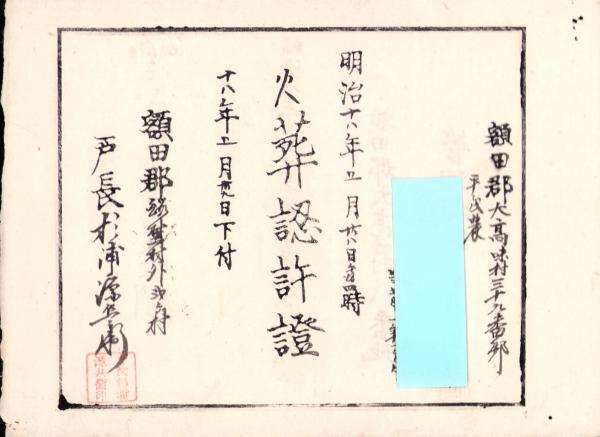 額田郡大高味村三十九番邸
平民農
明治十八年五月廿八日午前 時
火葬認許證
十八年五月廿九日下付
額田郡 村外 村
戸長松浦源兵衛